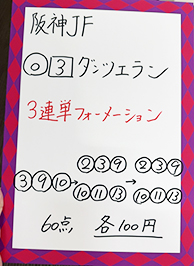 阪神JF
◎ 3 ダンツエラン
3連単フォーメーション
②③⑨ ②③⑨
③⑨⑩→⑩⑪⑬→⑩⑪⑬
60点 各100円